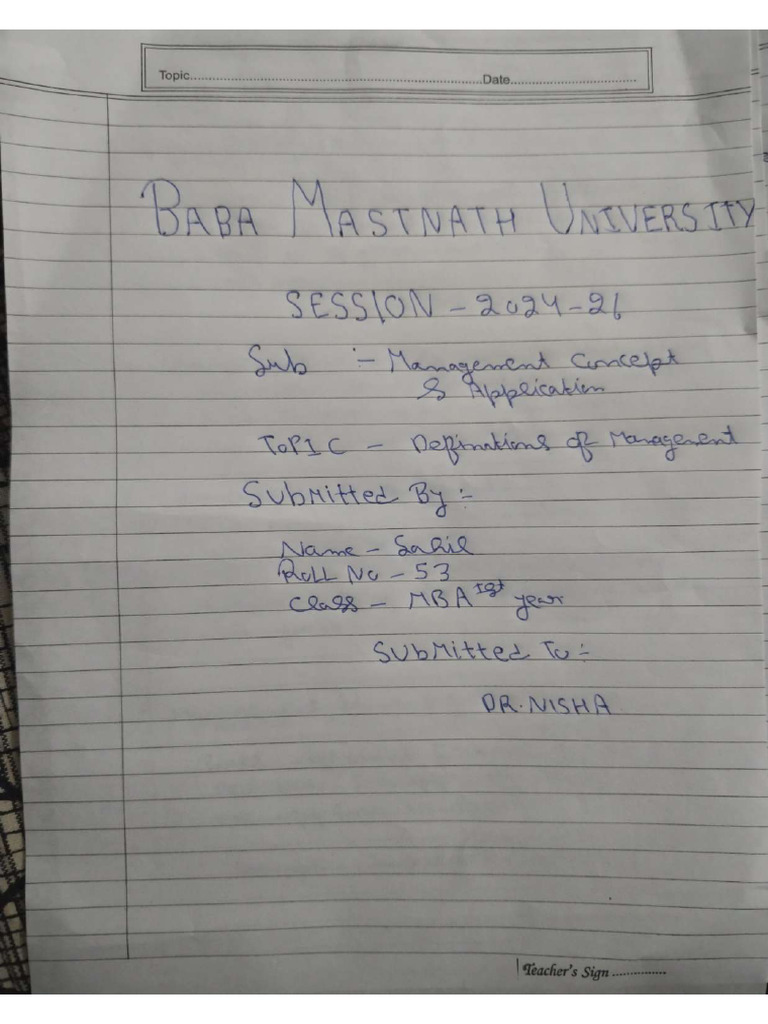 Topic.......................................................................................Date.....................................
BABA MASTNATH UNIVERSITY
SESSION - 2024-26
Sub :- Management Concept
& Application
TOPIC - Definations of Management
Submitted By :-
Name - Sahil
Roll No - 53
Class - MBA Ist year
Submitted To :-
DR. NISHA
Teacher's Sign ................